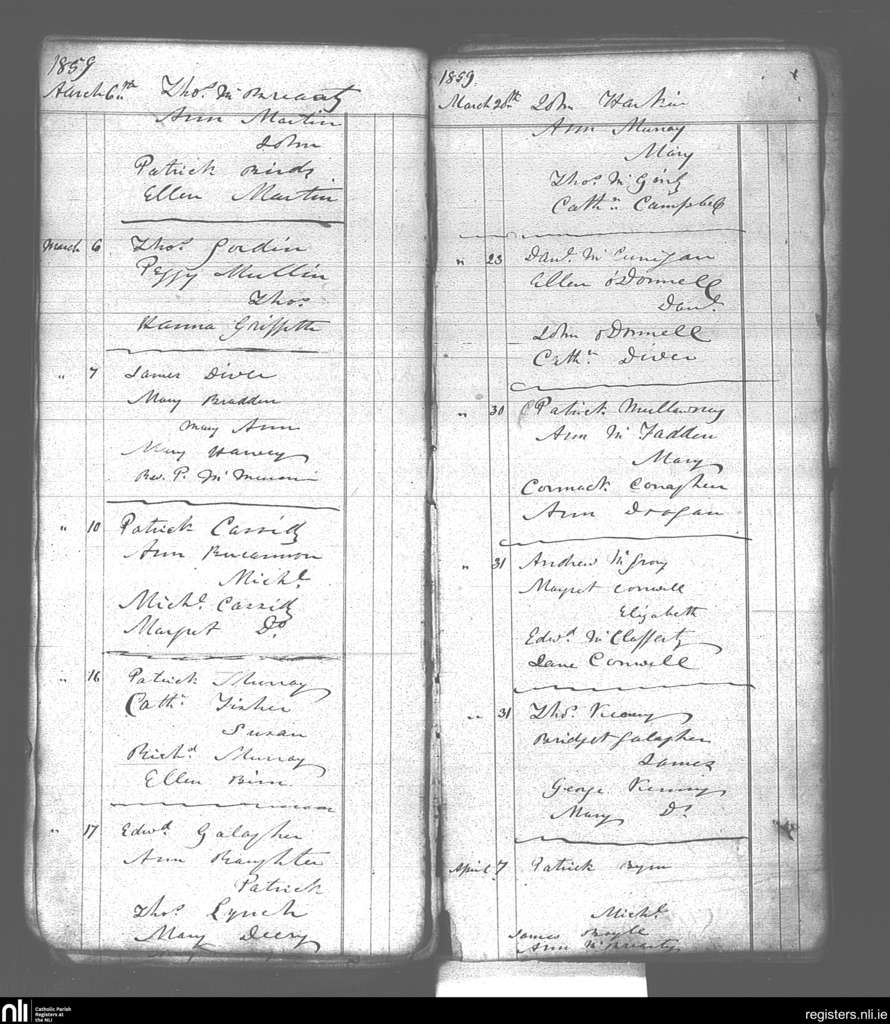 1859
March 6th Thos. McBrearty
Ann Martin
John
Patrick
Ellen Martin
March 6 Thos. Gordin
Peggy Mullin
Thos
Hanna Griffeth
" 7 James Diver
Mary Bradden
Mary Ann
Mary Harvey
Rev. P. Mc
" 10 Patrick Cassidy
Ann Bucannon
Michl.
Michl. Cassidy
Margret Do
" 16 Patrick Murray
Cathn. Fisher
Susan
Richd Murray
Ellen
" 17 Edwd Galagher
Ann
Patrick
Thos Lynch
Mary Deery
1859.
March 20th John Harkin
Ann Murray
Mary
Thos. McGinty
Cathn. Campbell
" 23 Danl. McCunigan
Ellen O'Donnell
Danl.
John O'Donnell
Cathn. Diver
" 30 Patrick
Ann McFadden
Mary
Cormack Conaghen
Ann Drogan
" 31 Andrew McGroy
Maygret Conwell
Elizabeth
Edwd McClafferty
Jane Conwell
" 31 Thos. Keeney
Bridget Galagher
James
George Keeney
Mary Do
April 7 Patrick Byrn
Michl.
James Boyle
Ann McBrearty
nli Catholic Parish
Registers at
the NLI
registers.nli.ie